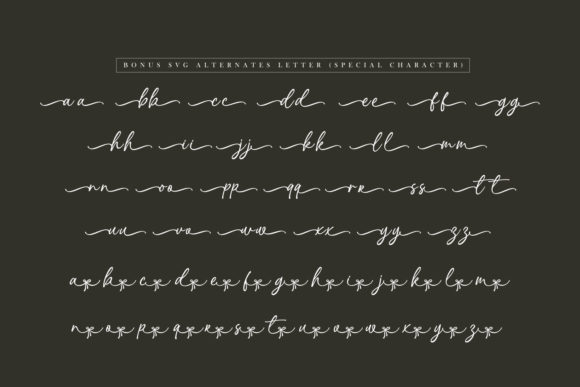 BONUS SVG ALTERNATES LETTER (SPECIAL CHARACTER)
aa bb cc dd ee ff gg
hh ii jj kk ll mm
nn oo pp qq rr ss tt
uu vv ww xx yy zz
a b c d e f g h i j k l m
n o p q r s t u v w x y z